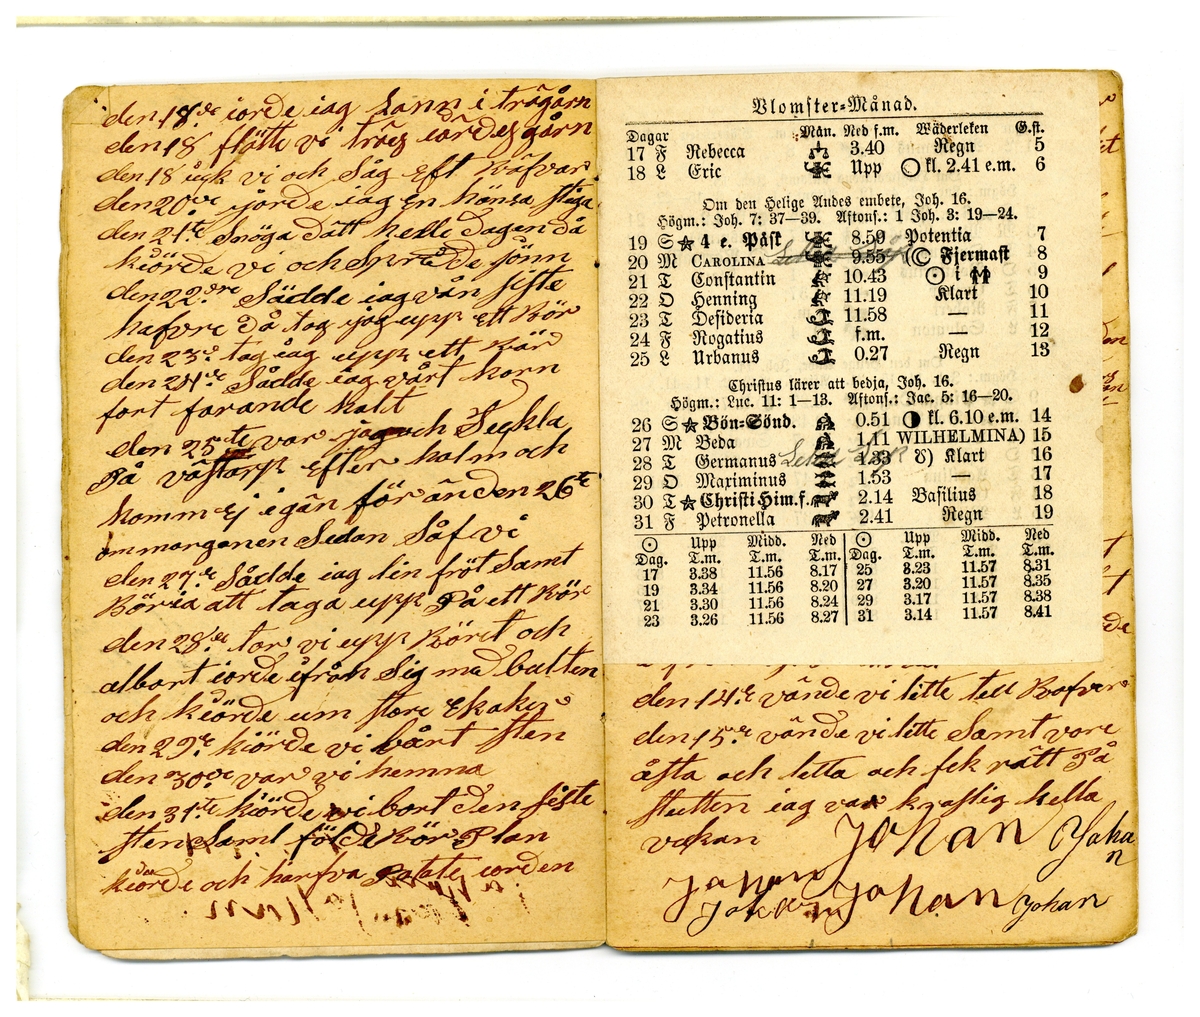 den 18de iorde iag Lann i trägårn
den 18 flötte vi träg iördeggårn
den 18 gick vi och Såg eft Räfvar
den 20de jorde iag en hönsa stiga
den 21te Snöga Dätt hella dagen då
kiörde vi och Sprädde Jönn
den 22dre Sådde iag vån siste
hafvre Då tog jag upp ett Rör
den 23de tog iag upp ett Rör
den 24de Sådde iag vårt korn
fort farande kalt
den 25te var jag och Seckla
På västarp efter halm och
komm ej igän för än den 26te
om morganen Sedan Såf vi
den 27de Sådde iag lin fröt Samt
Böria att taga upp På ett Rör
den 28de tar vi upp Röret och
albart iorde ifrån Sig mad batten
och kiörde um store Ekaker
den 29de kiörde vi bårt sten
den 30de var vi hemma
den 31te kiörde vi bort den siste
sten Samt földe Rör Plan
kiörde och harfva Potate iorden
Blomster=Månad.
Dagar Mån. Ned f.m. Wäderleken G.st.
17 F Rebecca 3.40 Regn 5
18 L Eric Upp kl. 2.41 e.m. 6
Om den Helige Andes embete, Joh. 16.
Högm.: Joh. 7: 37—39. Aftons.: 1 Joh. 3: 19—24.
19 S 4 e. Påsk 8.59 Potentia 7
20 M CAROLINA 9.55 Fjermast 8
21 T Constantin 10.43 i 9
22 O Henning 11.19 Klart 10
23 T Desideria 11.58 — 11
24 F Rogatius f.m. 12
25 L Urbanus 0.27 Regn 13
Christus lärer att bedja, Joh. 16.
Högm.: Luc. 11: 1—13. Aftons.: Jac. 5: 16—20.
26 S Bön=Sönd. 0.51 kl. 6.10 e.m. 14
27 M Beda 1.11 WILHELMINA) 15
28 T Germanus 1.33 Klart 16
29 O Maximinus 1.53 — 17
30 T Christi Him.f. 2.14 Basilius 18
31 F Petronella 2.41 Regn 19
☉ Upp Midd. Ned ☉ Upp Midd. Ned
Dag. T.m. T.m. T.m. Dag. T.m. T.m. T.m.
17 3.38 11.56 8.17 25 3.23 11.57 8.31
19 3.34 11.56 8.20 27 3.20 11.57 8.35
21 3.30 11.56 8.24 29 3.17 11.57 8.38
23 3.26 11.56 8.27 31 3.14 11.57 8.41
den 14de vände vi litte tell Rofver
den 15de vände vi litte Samt vore
åsta och letta och fek rätt På
slutten iag var kraftig kella
vakan Johan Johan
Johan Johan
Johan Johan